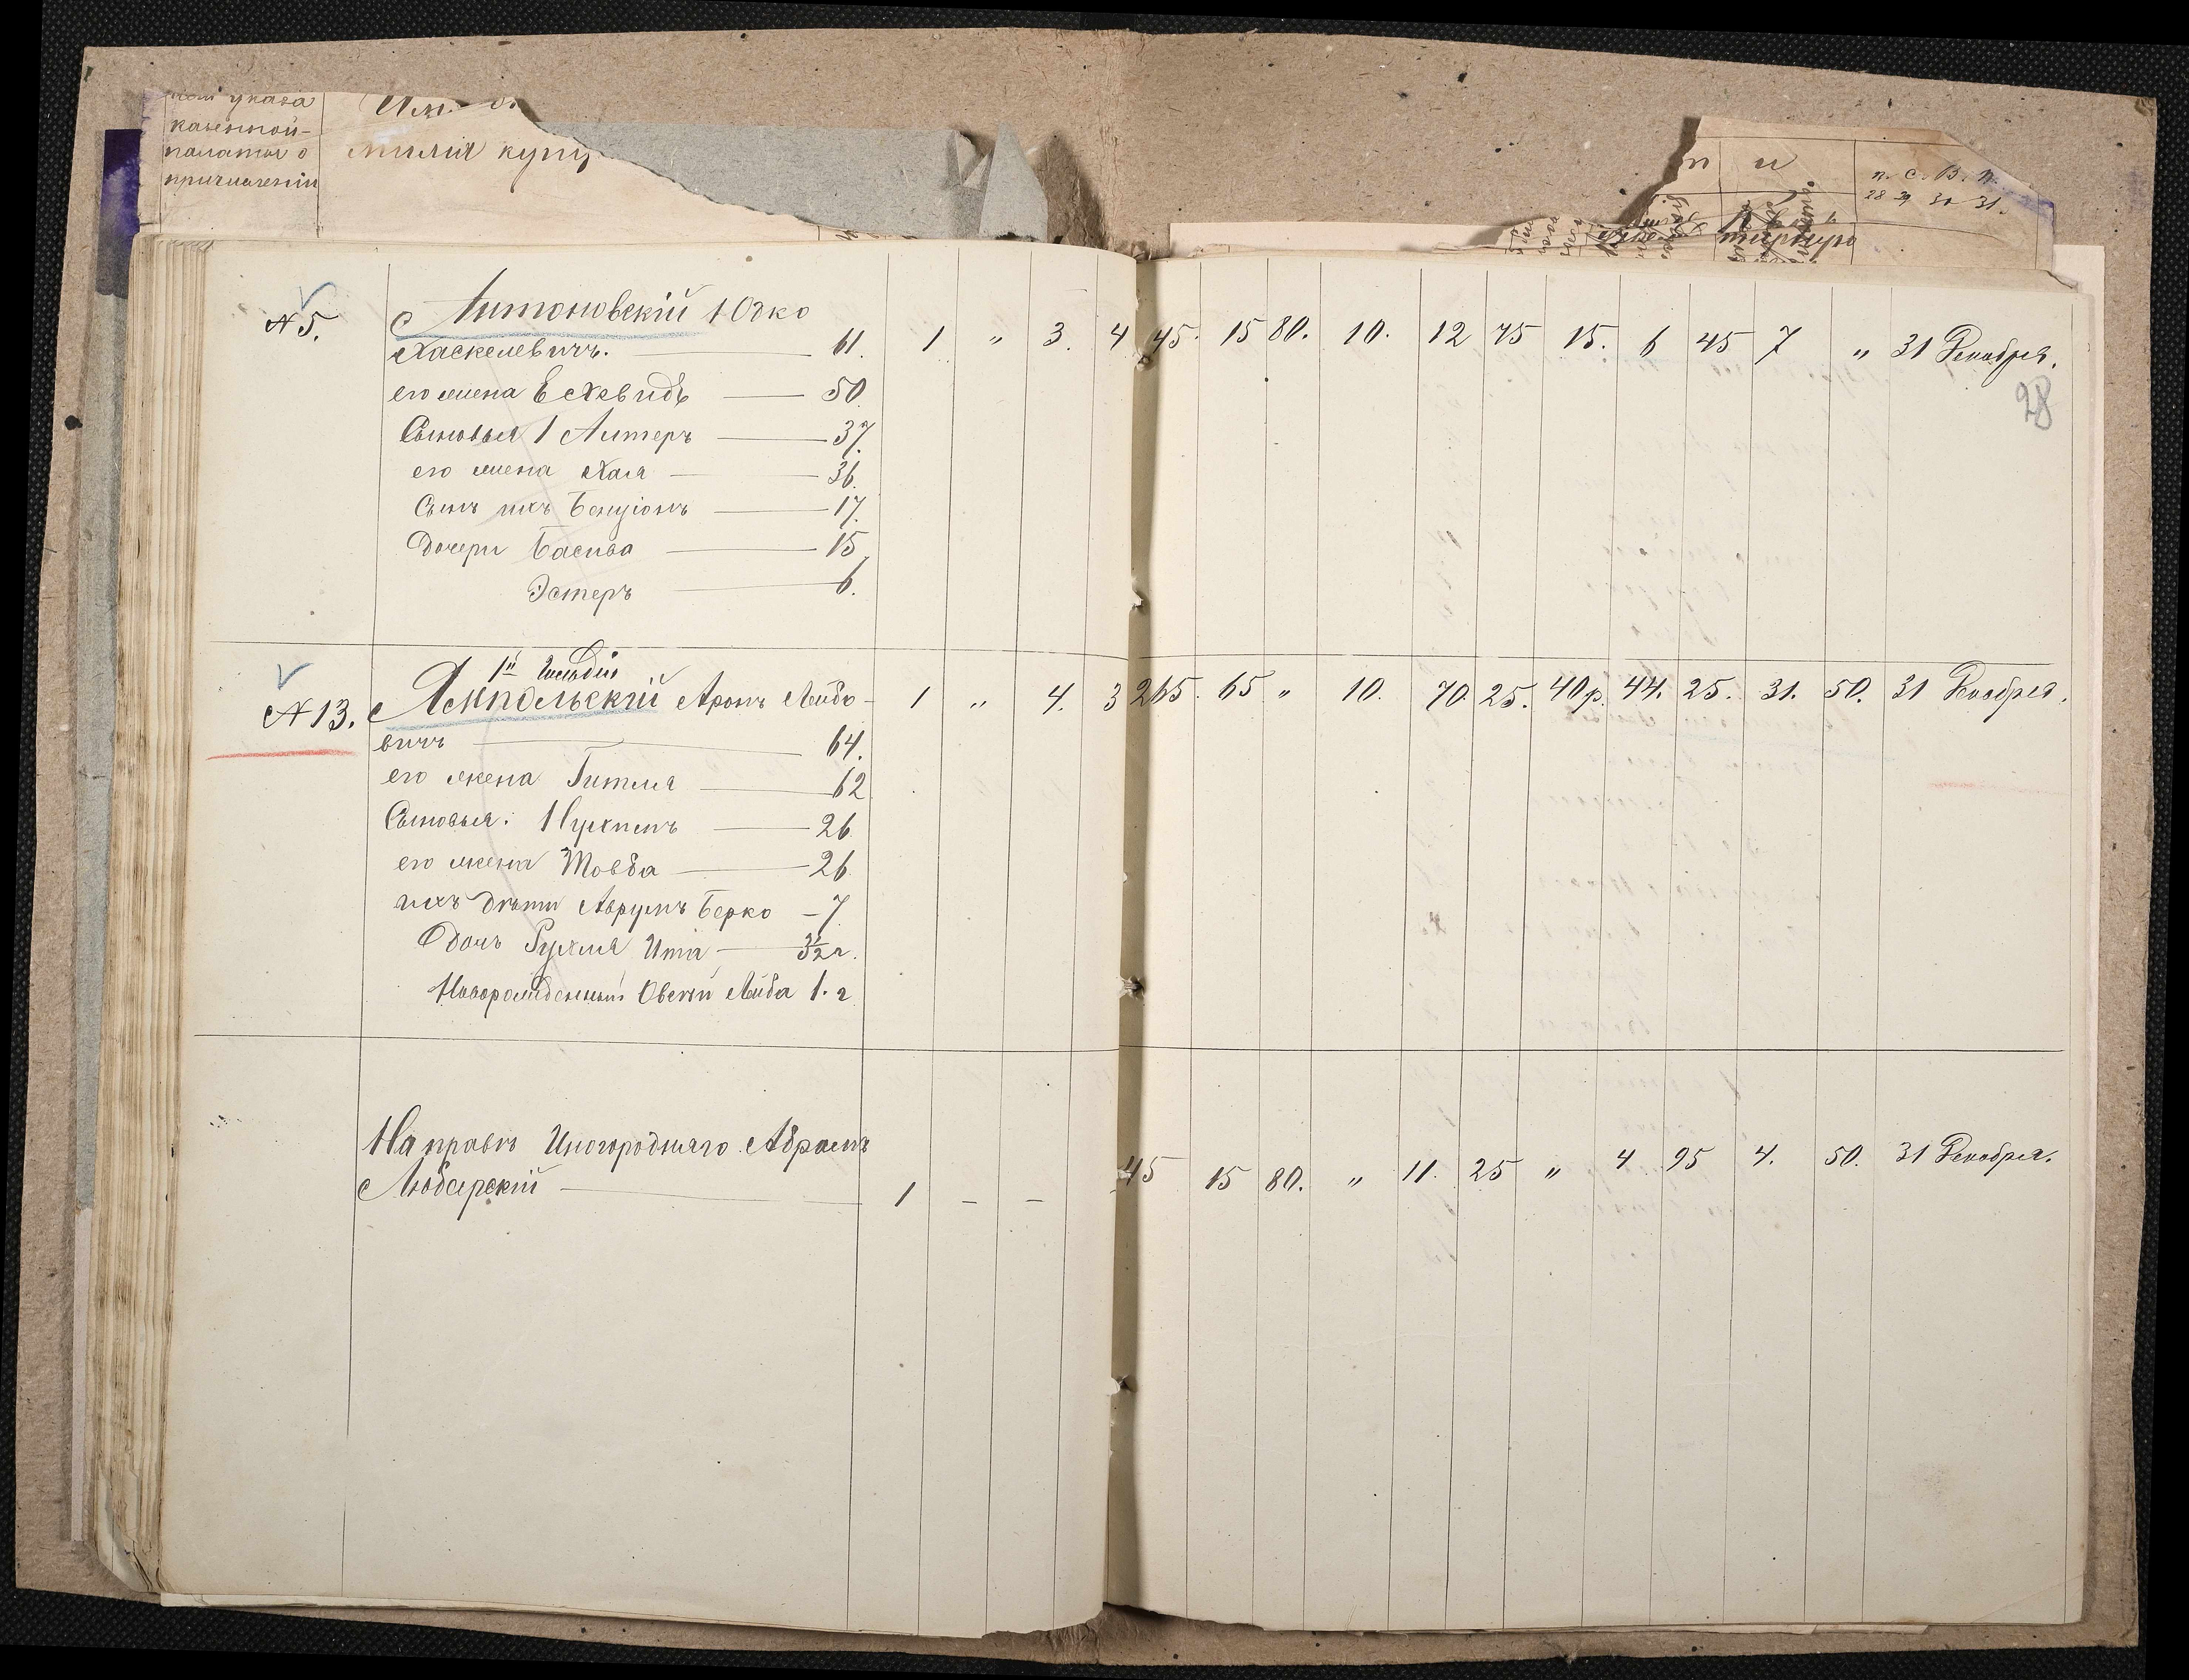 казенной-
палаты о
причислении
милія купц
п и
п. с. в. п.
28 29 30 31.
№ 5. Литоновскій Юдко
Хаскелевичъ. 61. 1 " 3. 4 45. 15 80. 10. 12 75 15. 6 45 7 " 31 Декабря.
28
его жена 50
Сыновья 1 Литеръ 37.
его жена Хая 36.
Сынъ ихъ Бенціонъ 17.
Дочери Басива 15
Эстеръ 6.
1й Гильдіи
№ 13. Ямпольскій Аронъ Лейбо- 1 " 4. 3 265. 65 " 10. 70 25. 40р. 44. 25. 31. 50. 31 Декабря.
вичъ 64.
его жена Гитля 62
Сыновья: Нухимъ 26.
его жена Товба 26
ихъ дѣти Аврумъ Берко - 7
Дочь Рухля Ита 3½ г.
Новорожденный Овсей Лейба 1. г
На правѣ Иногородняго Абрамъ
Любарскій 1 - - 45 15 80. " 11. 25 " 4 95 4. 50. 31 Декабря.